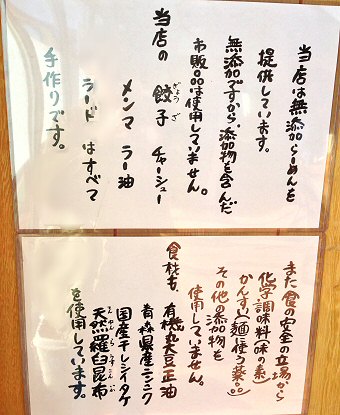 当店は無添加らーめんを
提供しています。
無添加ですから、添加物を含んだ
市販品は使用していません。
当店の 餃子 チャーシュー
ぎょう ざ
メンマ ラー油
ラード はすべて
手作りです。
また食の安全の立場から
化学調味料(味の素)
かんすい(麺に使う薬品)
その他の添加物を
使用していません。
食材も、有機丸大豆正油
青森県産ニンニク
国産干しシイタケ
天然羅臼昆布
を使用しています。